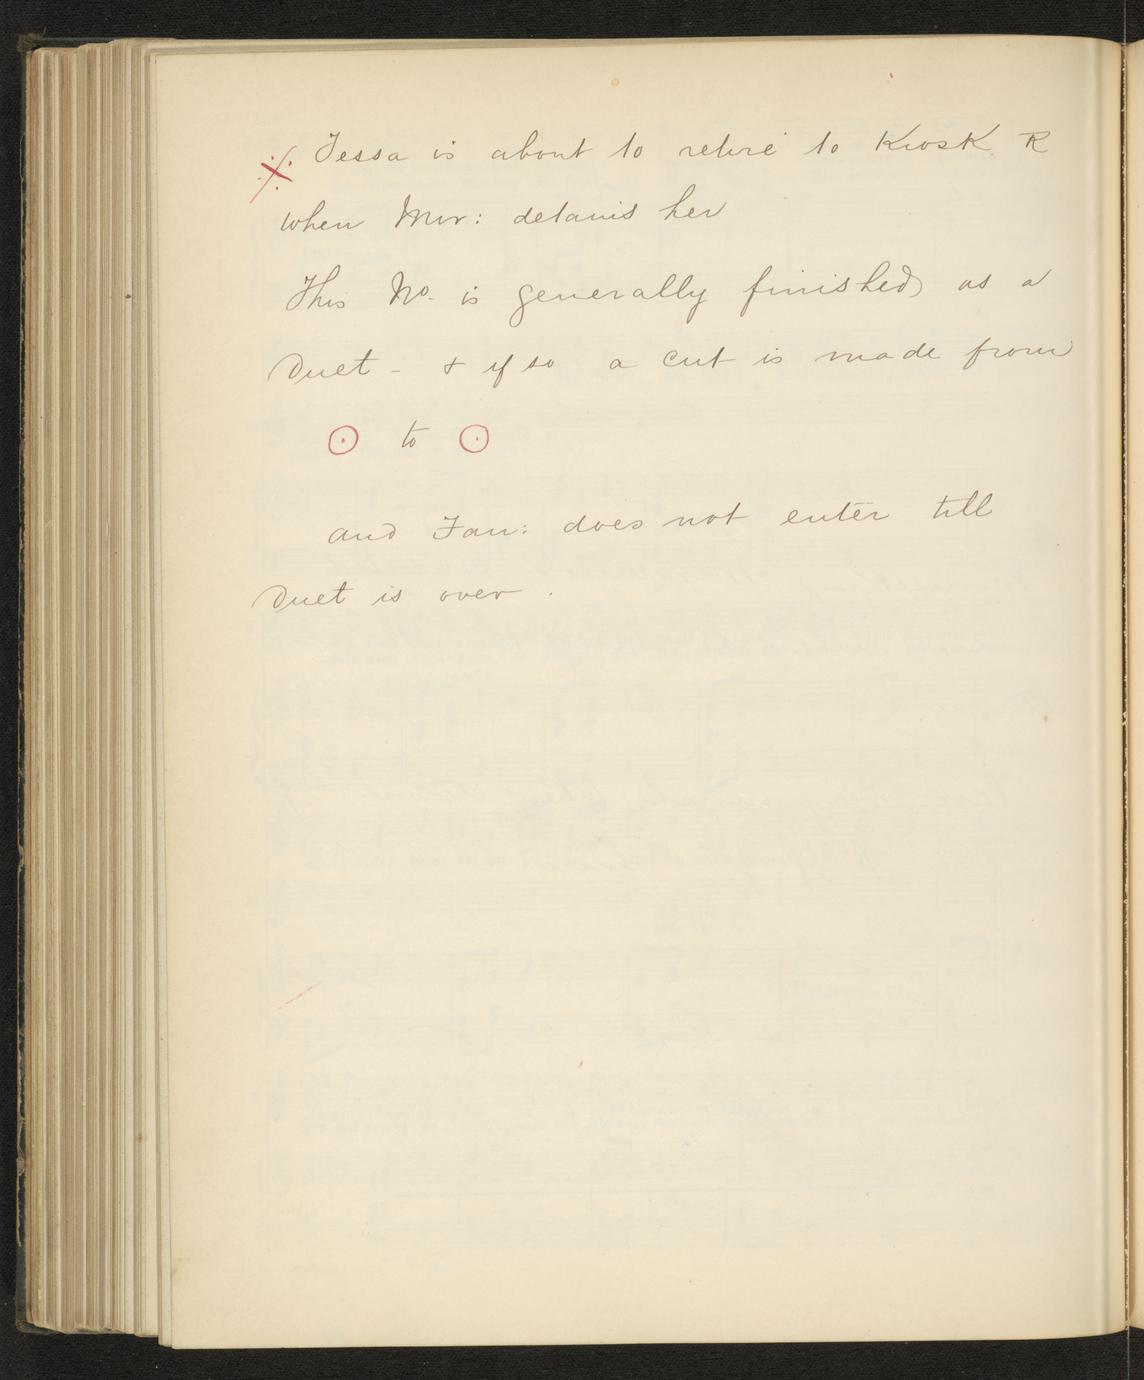 ※ Tessa is about to retire to Kiosk R
when Mir: detains her
This No. is generally finished as a
Duet - & if so a cut is made from
⊙ to ⊙
and Fan: does not enter till
Duet is over .